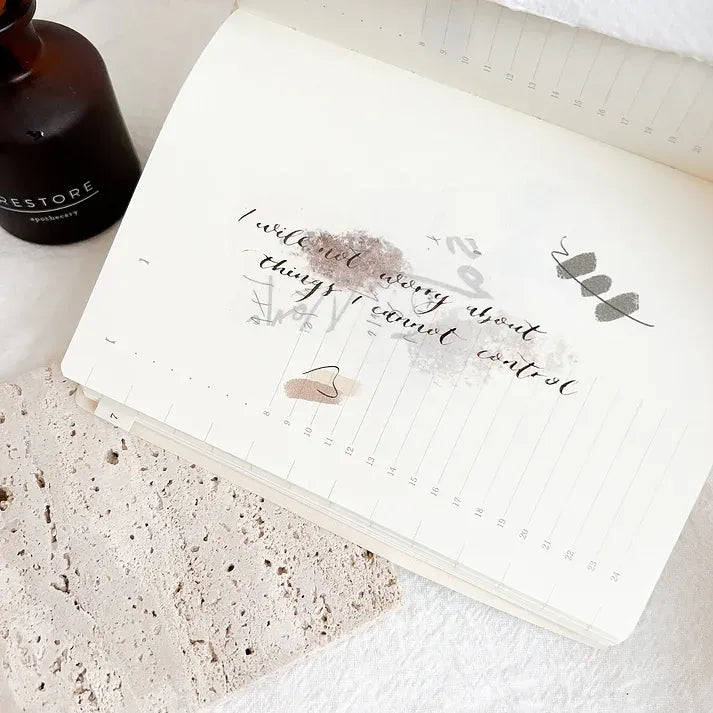 RESTORE
apothecary
I will not worry about
things I cannot control
8
9
10
11
12
13
14
15
16
17
18
19
20
21
22
23
24
7
8
9
10
11
12
13
14
15
16
17
18
19
20